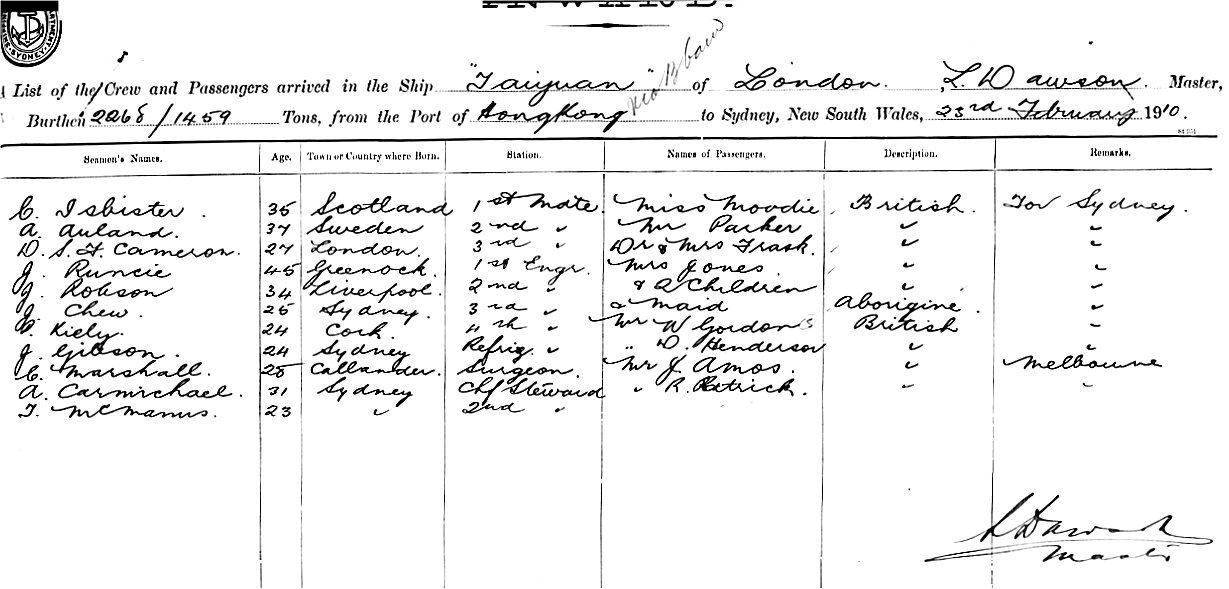 INWARD.
List of the Crew and Passengers arrived in the Ship "Taiyuan" of London. L. Dawson, Master,
Burthen 2268/1459 Tons, from the Port of Hongkong to Sydney, New South Wales, 23rd February 1910.
Seamen's Names. Age. Town or Country where Born. Station. Names of Passengers. Description. Remarks.
C. Isbister. 35 Scotland 1st Mate. Miss Moodie British. For Sydney.
A. Auland. 37 Sweden 2nd " Mr Parker " "
D. S. F. Cameron. 27 London. 3rd " Dr & Mrs Trask. " "
J. Runcie 45 Greenock. 1st Engr. Mrs Jones. " "
J. Robson 34 Liverpool. 2nd " & 2 Children " "
J. Chew. 25 Sydney. 3rd " & Maid Aborigine. "
Kiely. 24 Cork. 4th " Mr W Gordon British "
J. Gibson. 24 Sydney Refrig. " " D. Henderson " "
C. Marshall. 28 Callander. Surgeon. Mr J. Amos. " Melbourne
A. Carmichael. 31 Sydney Chf Steward " R. Patrick. " "
T. McManus. 23 " 2nd "
L Dawson
Master